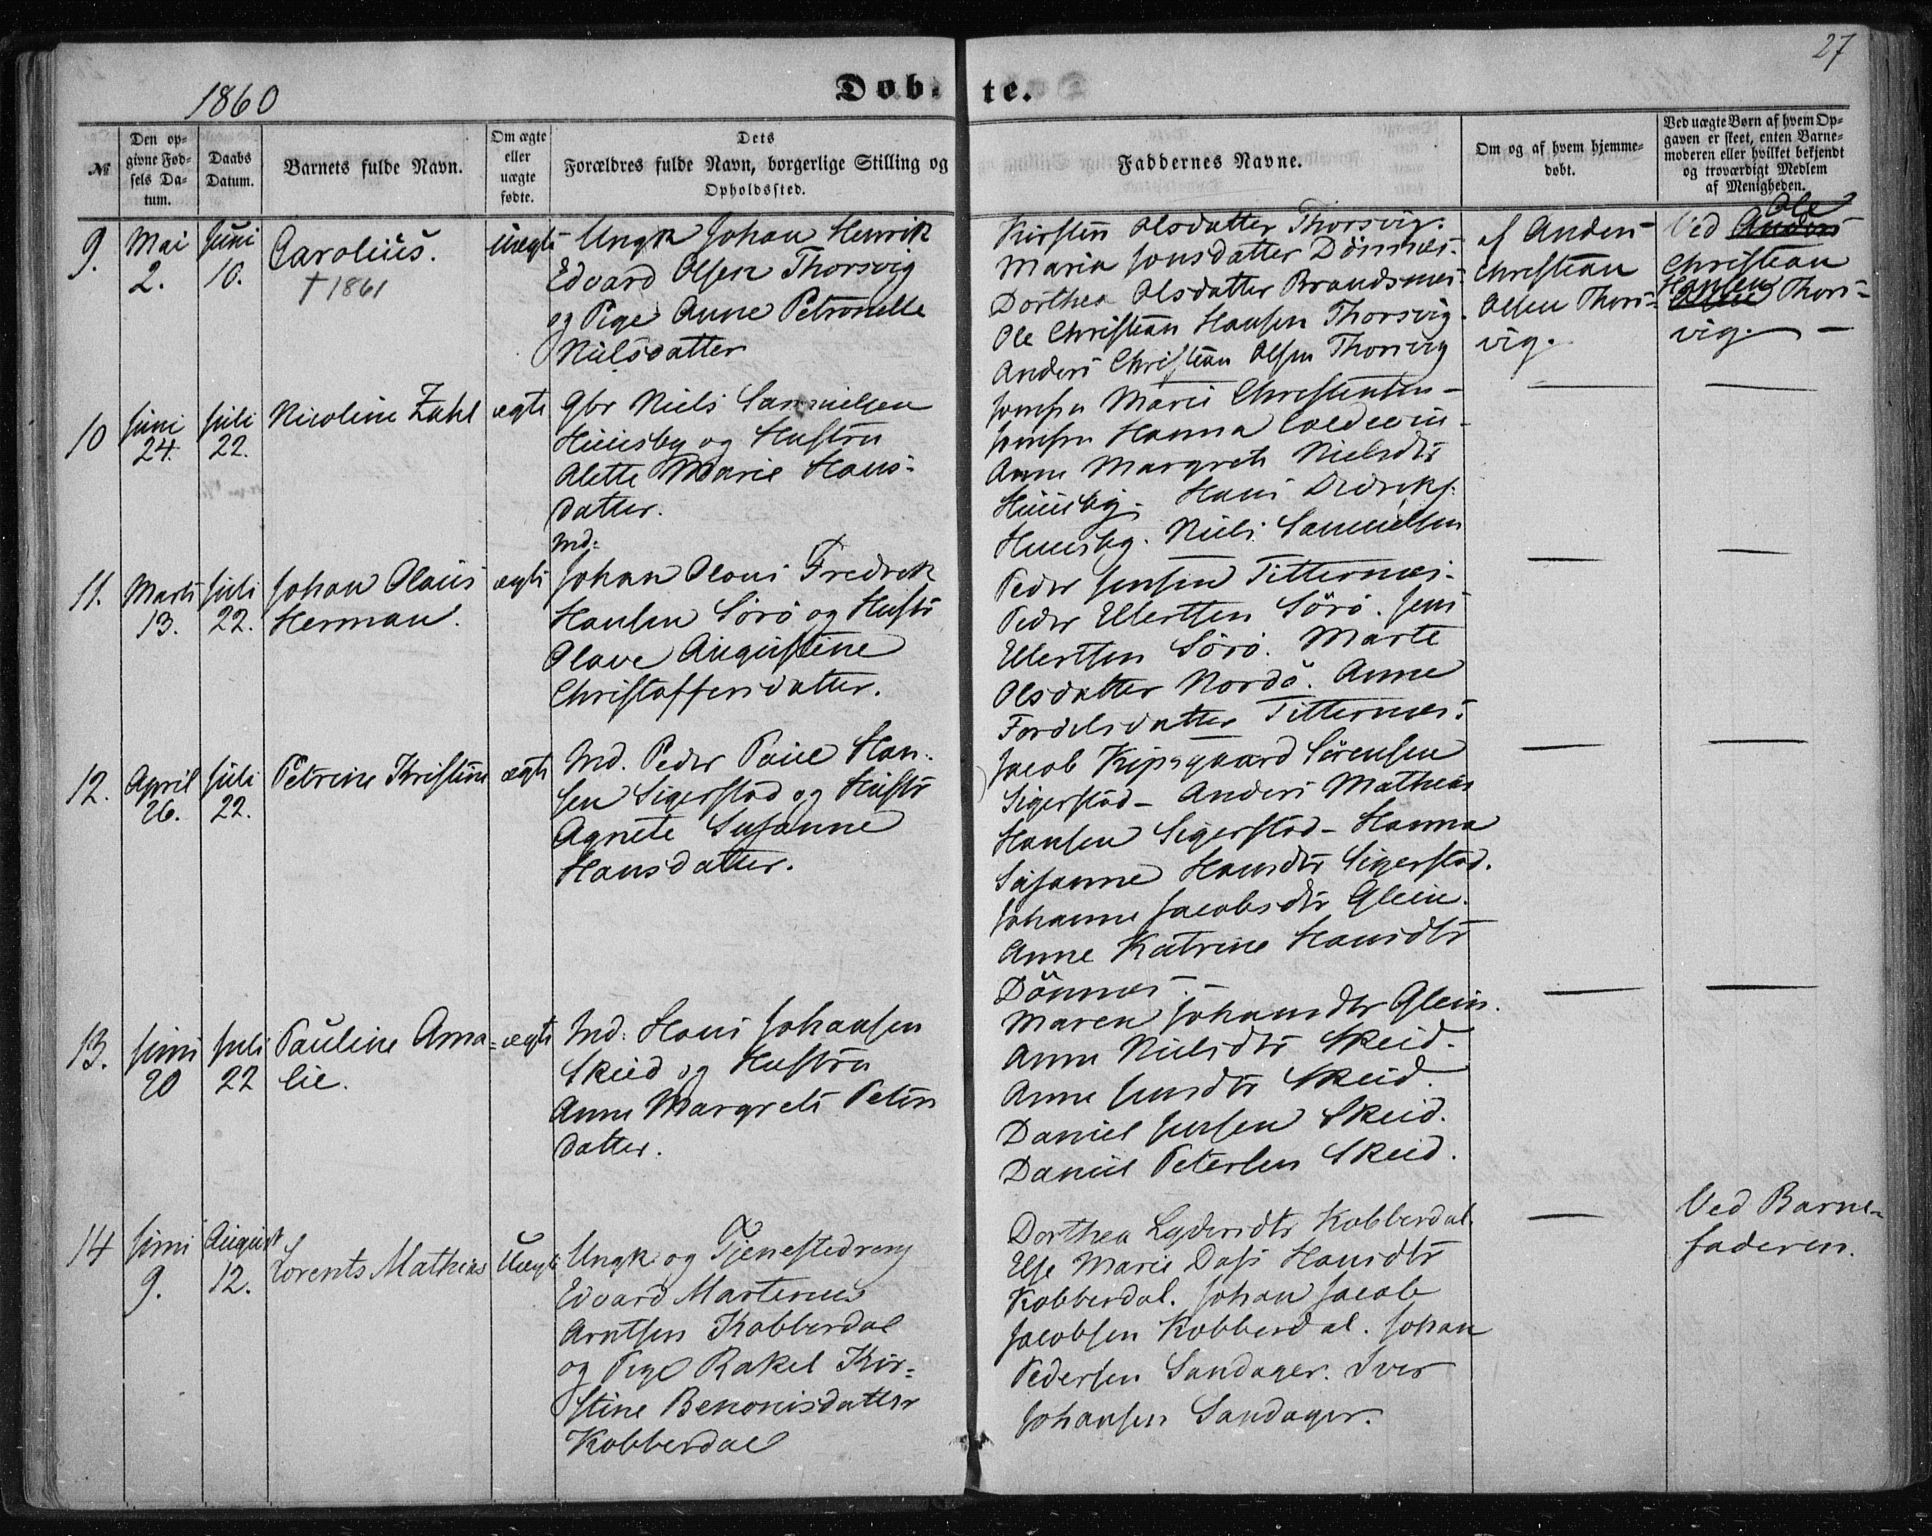 27
1860
Døbte.
№
Den opgivne Fødsels Datum.
Daabs Datum.
Barnets fulde Navn.
Om ægte eller uægte fødte.
Dets Forældres fulde Navn, borgerlige Stilling og Opholdssted.
Faddernes Navne.
Om og af hvem hjemmedøbt.
Ved uægte Børn af hvem Opgaven er skeet, enten Barnemoderen eller hvilket bekjendt og troværdigt Medlem af Menigheden.
9.
Mai
2.
Juni
10.
Carolius.
† 1861
Uægte
Ungk Johan Henrik
Edvard Olsen Thorsvig
og Pige Anne Petronelle
Nielsdatter
Kirsten Olsdatter Thorsvig.
Maria Jonsdatter Dønnæs.
Dorthea Olsdatter Brandsnæs.
Ole Christian Hansen Thorsvig.
Anders Christian Olsen Thorsvig
af Anders
Christian
Olsen Thors-
vig.
Ole
Ved Anders
Christian
Hansen
Olsen Thors-
vig. —
10
Juni
24.
Juli
22.
Nicoline Zahl
ægte
Gbr Niels Samuelsen
Huusby og Hustru
Alette Marie Hans-
datter.
Jomfru Marie Christensen -
Jomfru Hanna Coldevin -
Anne Margrete Nielsdtr
Huusby. Hans Didriks.
Huusby. Niels Samuelsen
—
—
11.
Marts
13.
Juli
22.
Johan Olaus
Herman.
ægte
Md:
Johan Olaus Fredrik
Hansen Sørø og Hustr
Olave Augustine
Christoffersdatter.
Peder Jensen Titternæs.
Peder Ellertsen Sørø. Jens
Ellertsen Sørø. Marte
Olsdatter Nordø. Anne
Fordelsdatter Titternæs.
—
—
12.
April
26.
Juli
22.
Petrine Kristine
ægte
Md. Peder Paul Han-
sen Sigerstad og Hustr
Agnete Susanne
Hansdatter.
Jacob Kipsgaard Sørensen
Sigerstad - Anders Mathias
Hansen Sigerstad - Hanna
Susanne Hansdtr Sigerstad.
Johanne Jacobsdtr Glein.
Anne Katrine Hansdtr
Dönnæs. -
—
—
13.
Juni
20
Juli
22
Pauline Ama-
lie.
ægte
Md: Hans Johansen
Skeid og Hustru
Anne Margrete Peters
datter.
Maren Johansdtr Glein.
Anne Nielsdtr Skeid.
Anne Jensdtr Skeid.
Daniel Jensen Skeid.
Daniel Petersen Skeid.
—
—
14
Juni
9.
August
12.
Lorents Mathias
Uægte
Ungk. og Tjenestedreng
Edvard Martenus
Arntsen Kobberdal
og Pige Rakel Kir-
stine Benonisdatter
Kobberdal
Dorthea Lydersdtr Kobberdal.
Else Marie Dass Hansdtr
Kobberdal. Johan Jacob
Jacobsen Kobberdal. Johan
Pedersen Sandager. Iver
Johansen Sandager.
—
Ved Barne-
faderen.